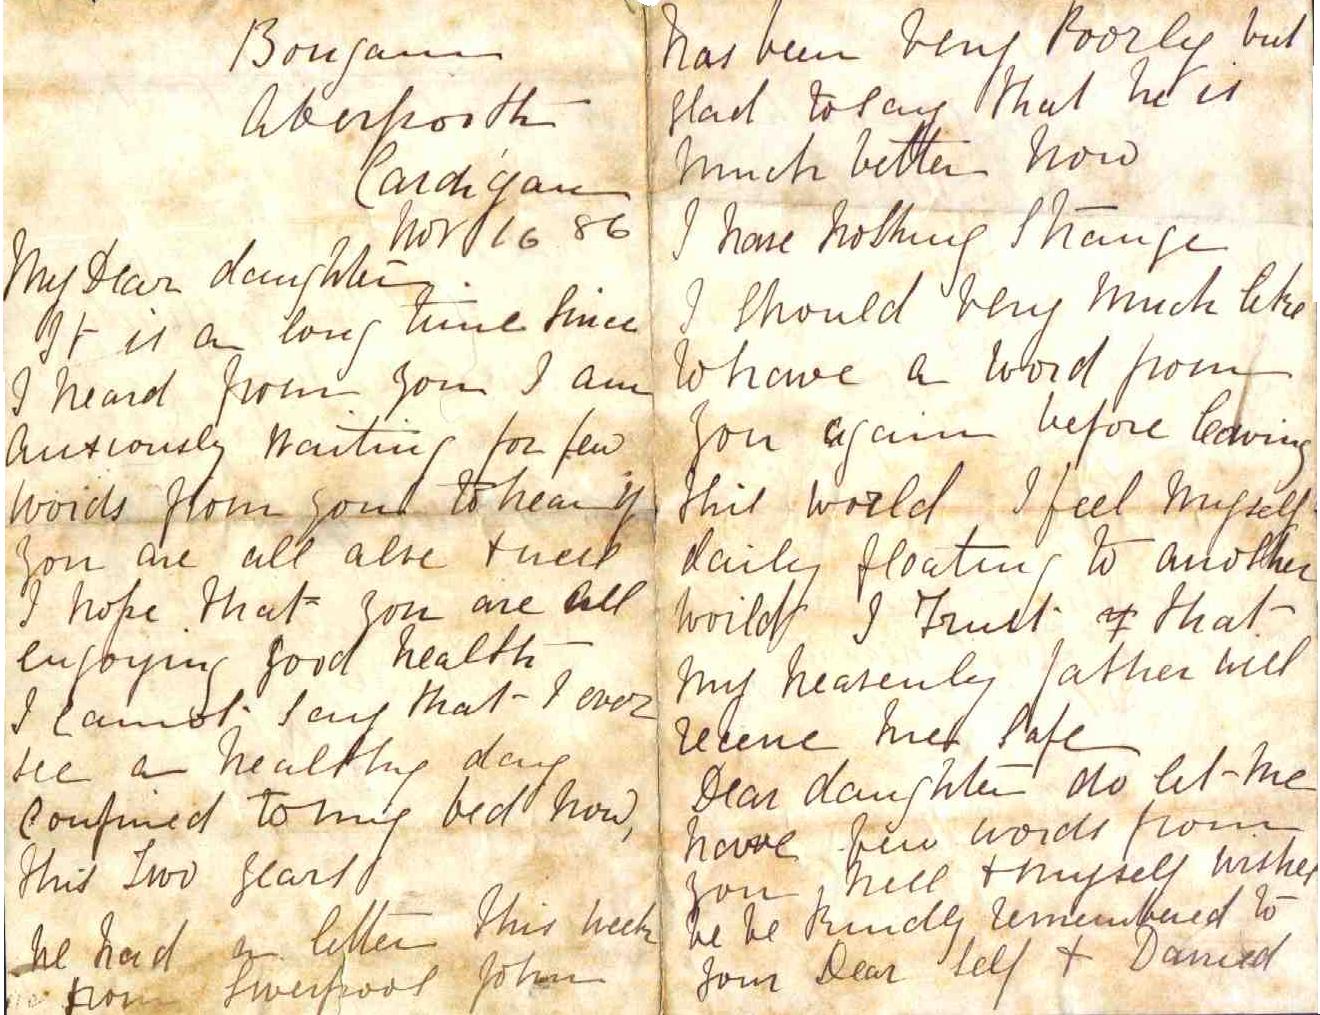 Bongam
Aberporth
Cardigan
Nov 16 86
My Dear daughter
It is a long time since
I heard from you I am
anxiously waiting for few
words from you to hear if
you are all alve & well
I hope that you are all
enjoying good health
I cannot say that I ever
see a healthy day
confined to my bed now,
this two years
we had a letter this week
from Liverpool John
has been very Poorly but
glad to say that he is
much better now
I have nothing Strange
I should very much like
to have a word from
you again before leaving
this world I feel myself
daily floating to another
world I Trust & that
my heavenly father will
receive me safe
Dear daughter do let me
have few words from
you, Nell & myself wishes
be be kindly remembered to
your Dear self & Daniel